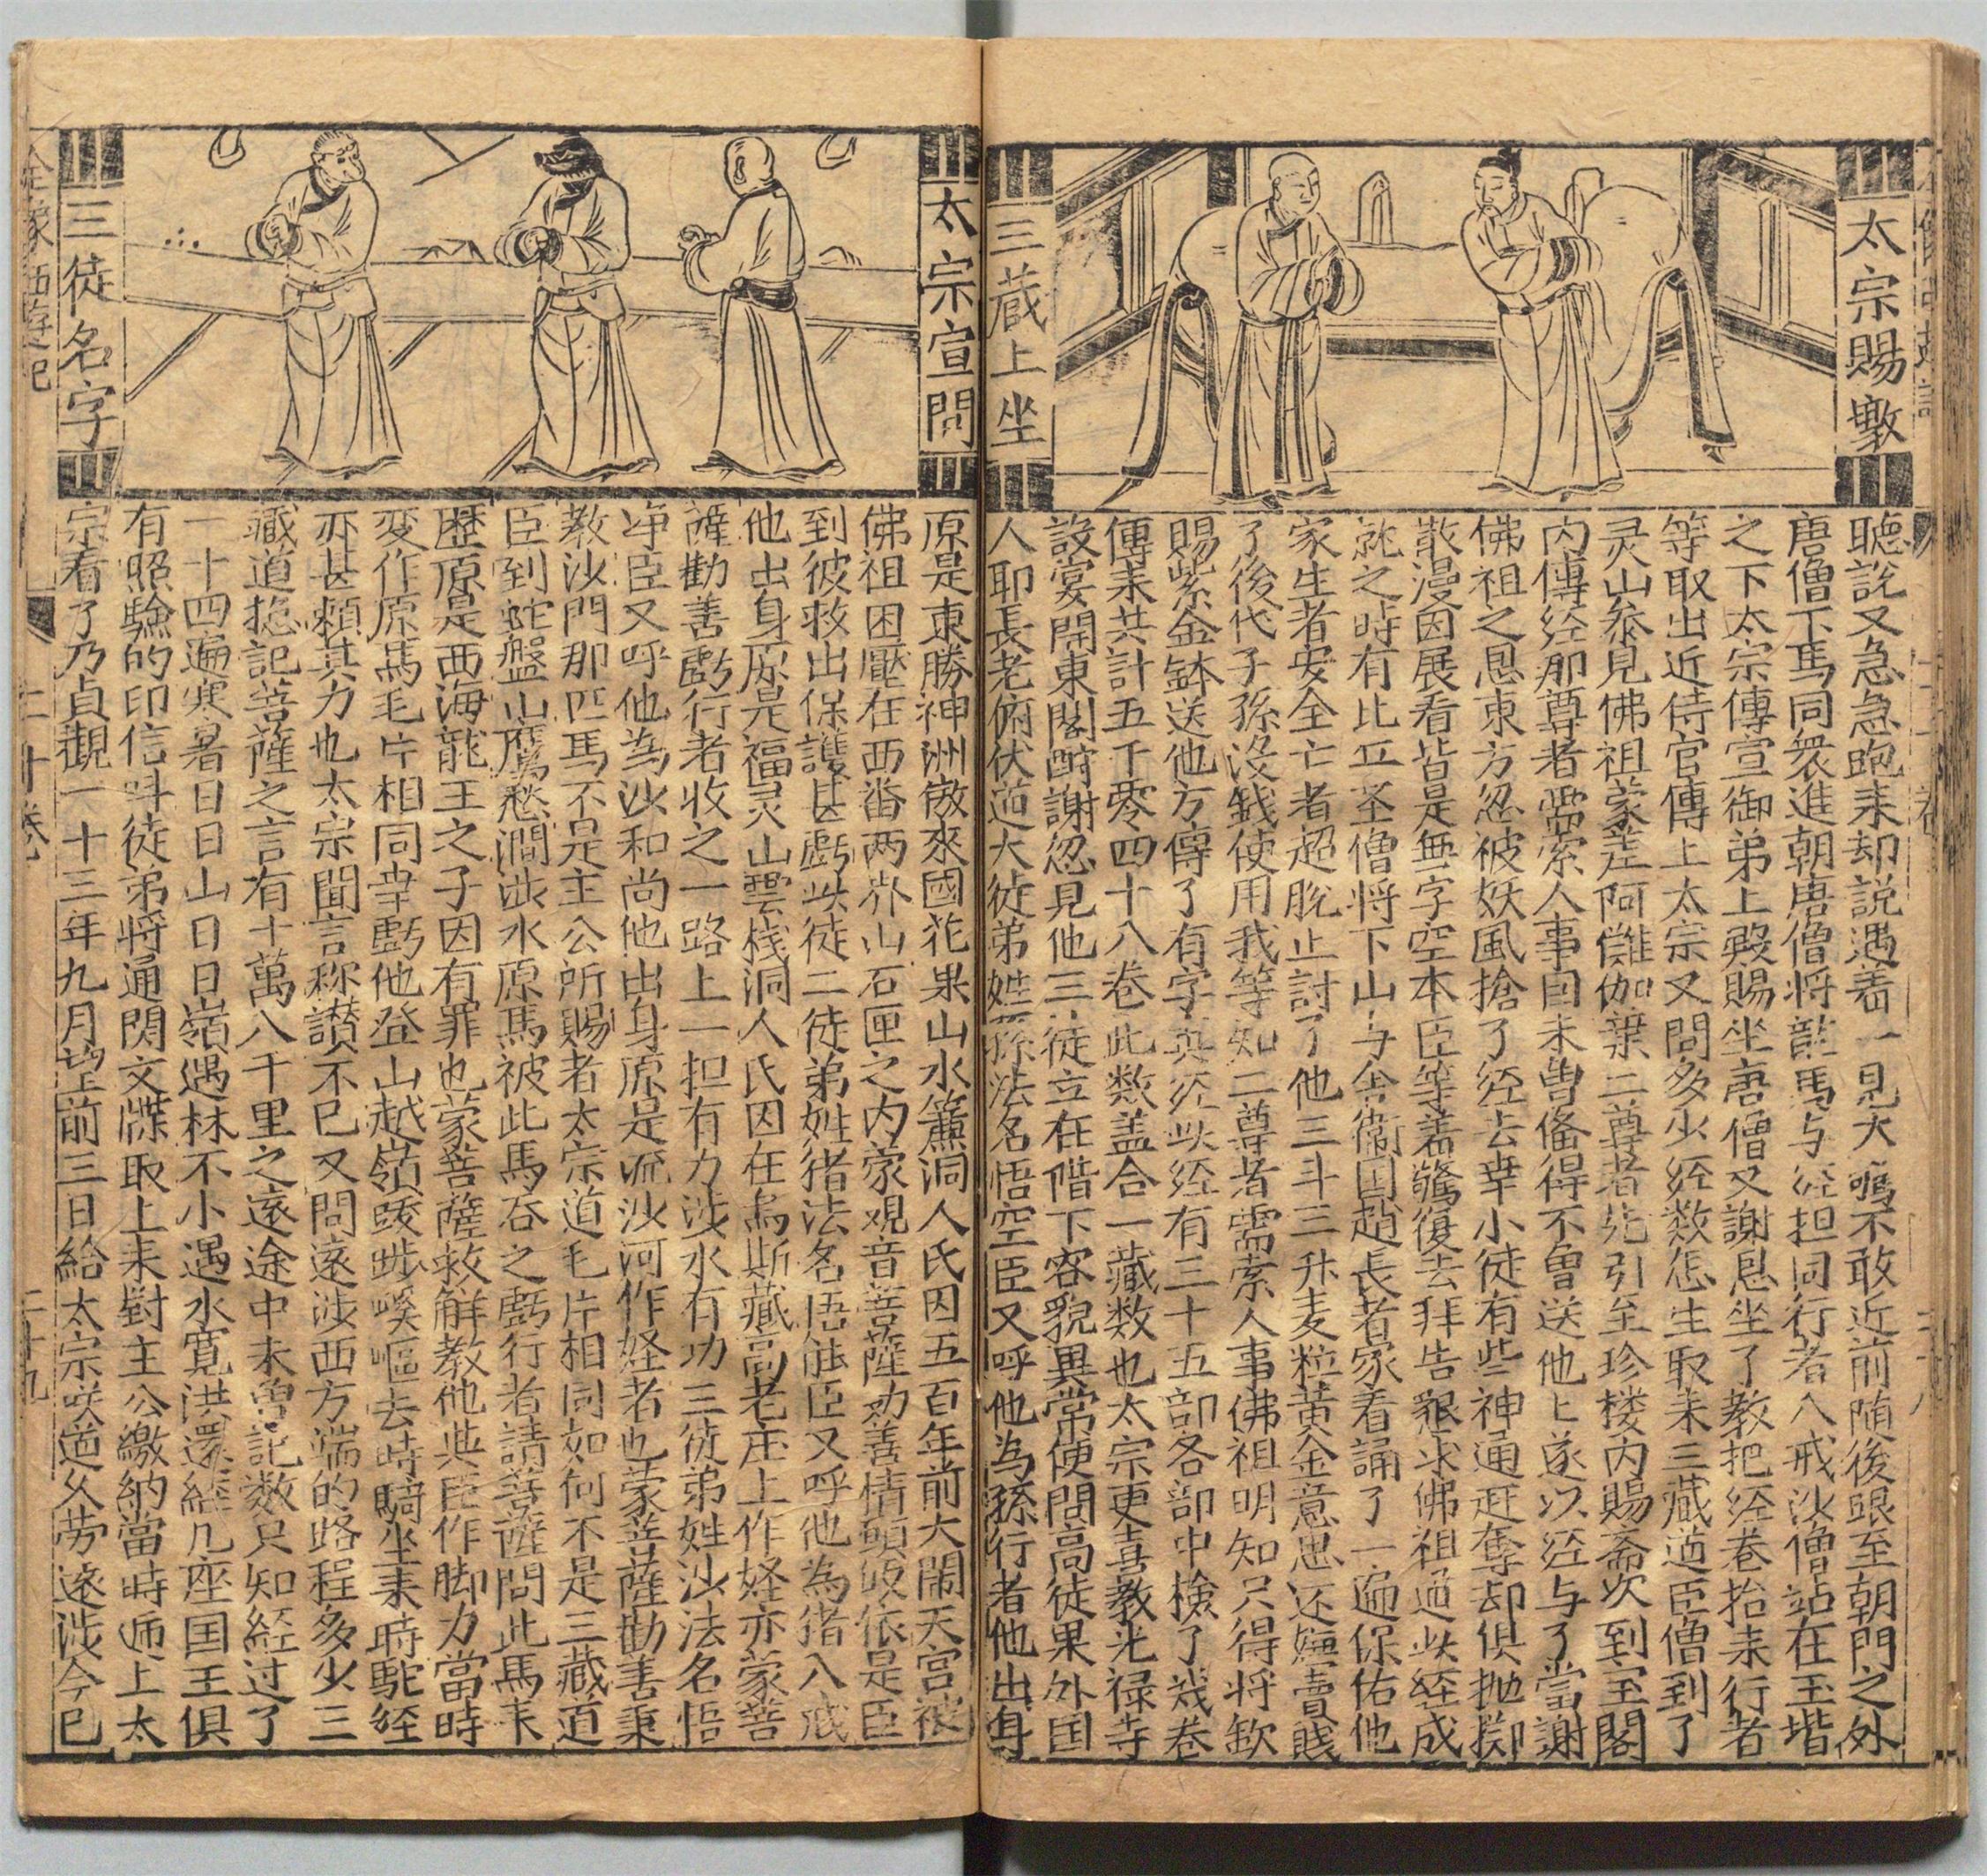 太宗賜墩
三蔵上坐
聽說又急急跑耒却説遇着一見大鳴不敢近前随後跟至朝門之外
唐僧下馬同衆進朝唐僧将龍馬与経担同行者八戒沙僧站在玉堦
之下太宗傳宣御弟上殿賜坐唐僧又謝恩坐了教把経巻抬耒行者
等取出近侍官傳上太宗又問多少経数怎生取耒三藏道臣僧到了
灵山叅見佛祖蒙差阿傩伽葉二尊者先引至珍楼内賜斋次到宝閣
内傳経那尊者需索人事因未曽俻得不曽送他他遂以経与了當謝
佛祖之恩東方忽被妖風搶了経去幸小徒有些神通赶奪却俱抛擲
散漫因展看皆是無字空本臣等着驚復去拜告懇求佛祖道此経成
就之時有比丘圣僧将下山与舍衞国趙長者家看誦了一遍保佑他
家生者安全亡者超脫止討了他三斗三升麦粒黄金意思还嫌賣賤
了後代子孫没銭使用我等知二尊者需索人事佛祖明知只得将欽
賜紫金缽送他方傳了有字真経此経有三十五部各部中檢了㡬巻
傳耒共計五千零四十八巻此数盖合一藏数也太宗更喜教光禄寺
設宴開東閣酧謝忽見他三徒立在階下容貌異常便問高徒果外国
人耶長老俯伏道大徒弟姓孫法名悟空臣又呼他為孫行者他出身
太宗宣問
三徒名字
原是東勝神洲傲來國花果山水簾洞人氏因五百年前大鬧天宮被
佛祖困壓在西畨两界山石匣之内蒙覌音菩薩劝善情願皈依是臣
到彼救出保護甚虧此徒二徒弟姓猪法名悟能臣又呼他為猪八戒
他出身原是福灵山雲棧洞人氏因在烏斯藏高老庄上作怪亦蒙菩
薩勸善虧行者收之一路上一担有力涉水有功三徒弟姓沙法名悟
净臣又呼他為沙和尚他出身原是流沙河作怪者也蒙菩薩勸善秉
教沙門那匹馬不是主公所賜者太宗道毛片相同如何不是三藏道
臣到蛇盤山鷹愁澗渉水原馬被此馬吞之虧行者請菩薩問此馬耒
歴原是西海龍王之子因有罪也蒙菩薩救觧教他與臣作脚力當時
变作原馬毛片相同幸虧他登山越嶺跋涉崎嶇去時騎坐耒時駝経
亦甚頼其力也太宗聞言称讃不已又問遠涉西方端的路程多少三
藏道揔記菩薩之言有十萬八千里之逺途中未曽記数只知経过了
一十四遍寒暑日日山日日嶺遇林不小遇水寛洪還経几座国王俱
有照驗的印信呌徒弟将通関文牒取上耒對主公繳納當時逓上太
宗看了乃貞觀一十三年九月望前三日給太宗咲道久劳逺涉今已
全像西遊記
二十巻
二十九